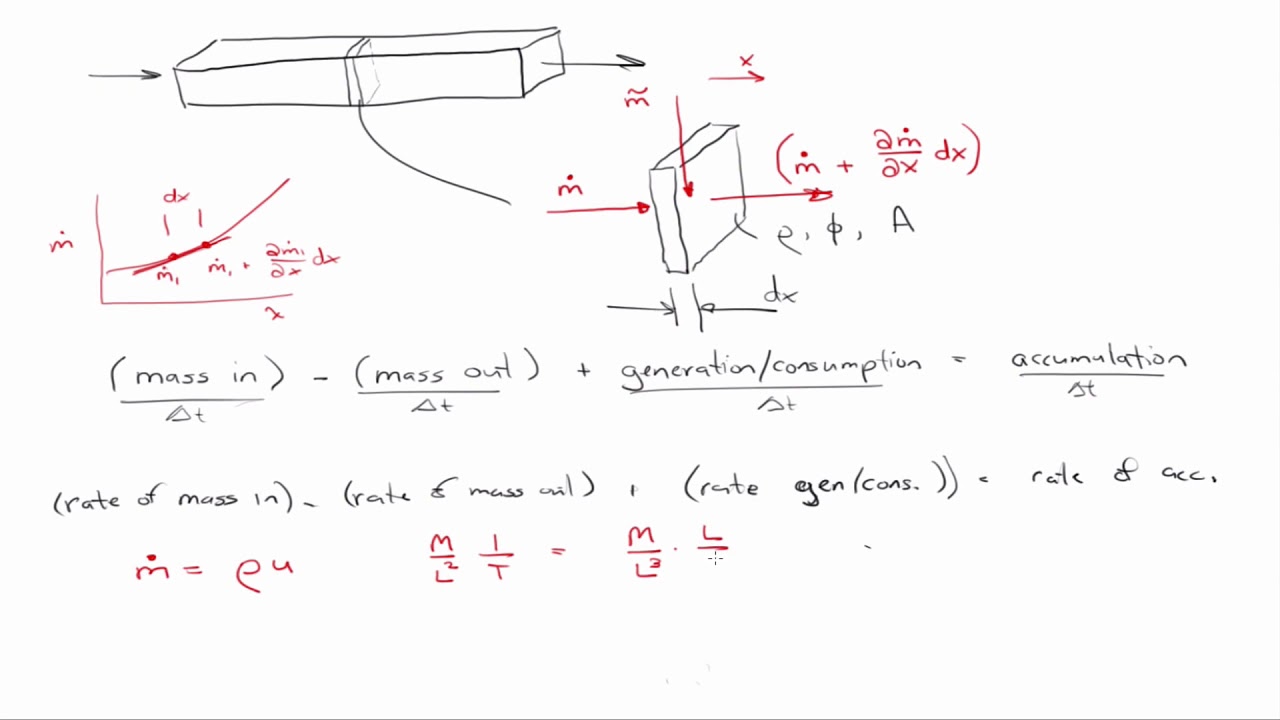 x
m̃
(ṁ + ∂ṁ/∂x dx)
ṁ
ρ, ϕ, A
dx
dx
ṁ
ṁ₁
ṁ₁ + ∂ṁ₁/∂x dx
x
(mass in)/Δt - (mass out)/Δt + generation/consumption/Δt = accumulation/Δt
(rate of mass in) - (rate of mass out) + (rate gen/cons.)) = rate of acc.
ṁ = ρu M/L² 1/T = M/L³ · L/